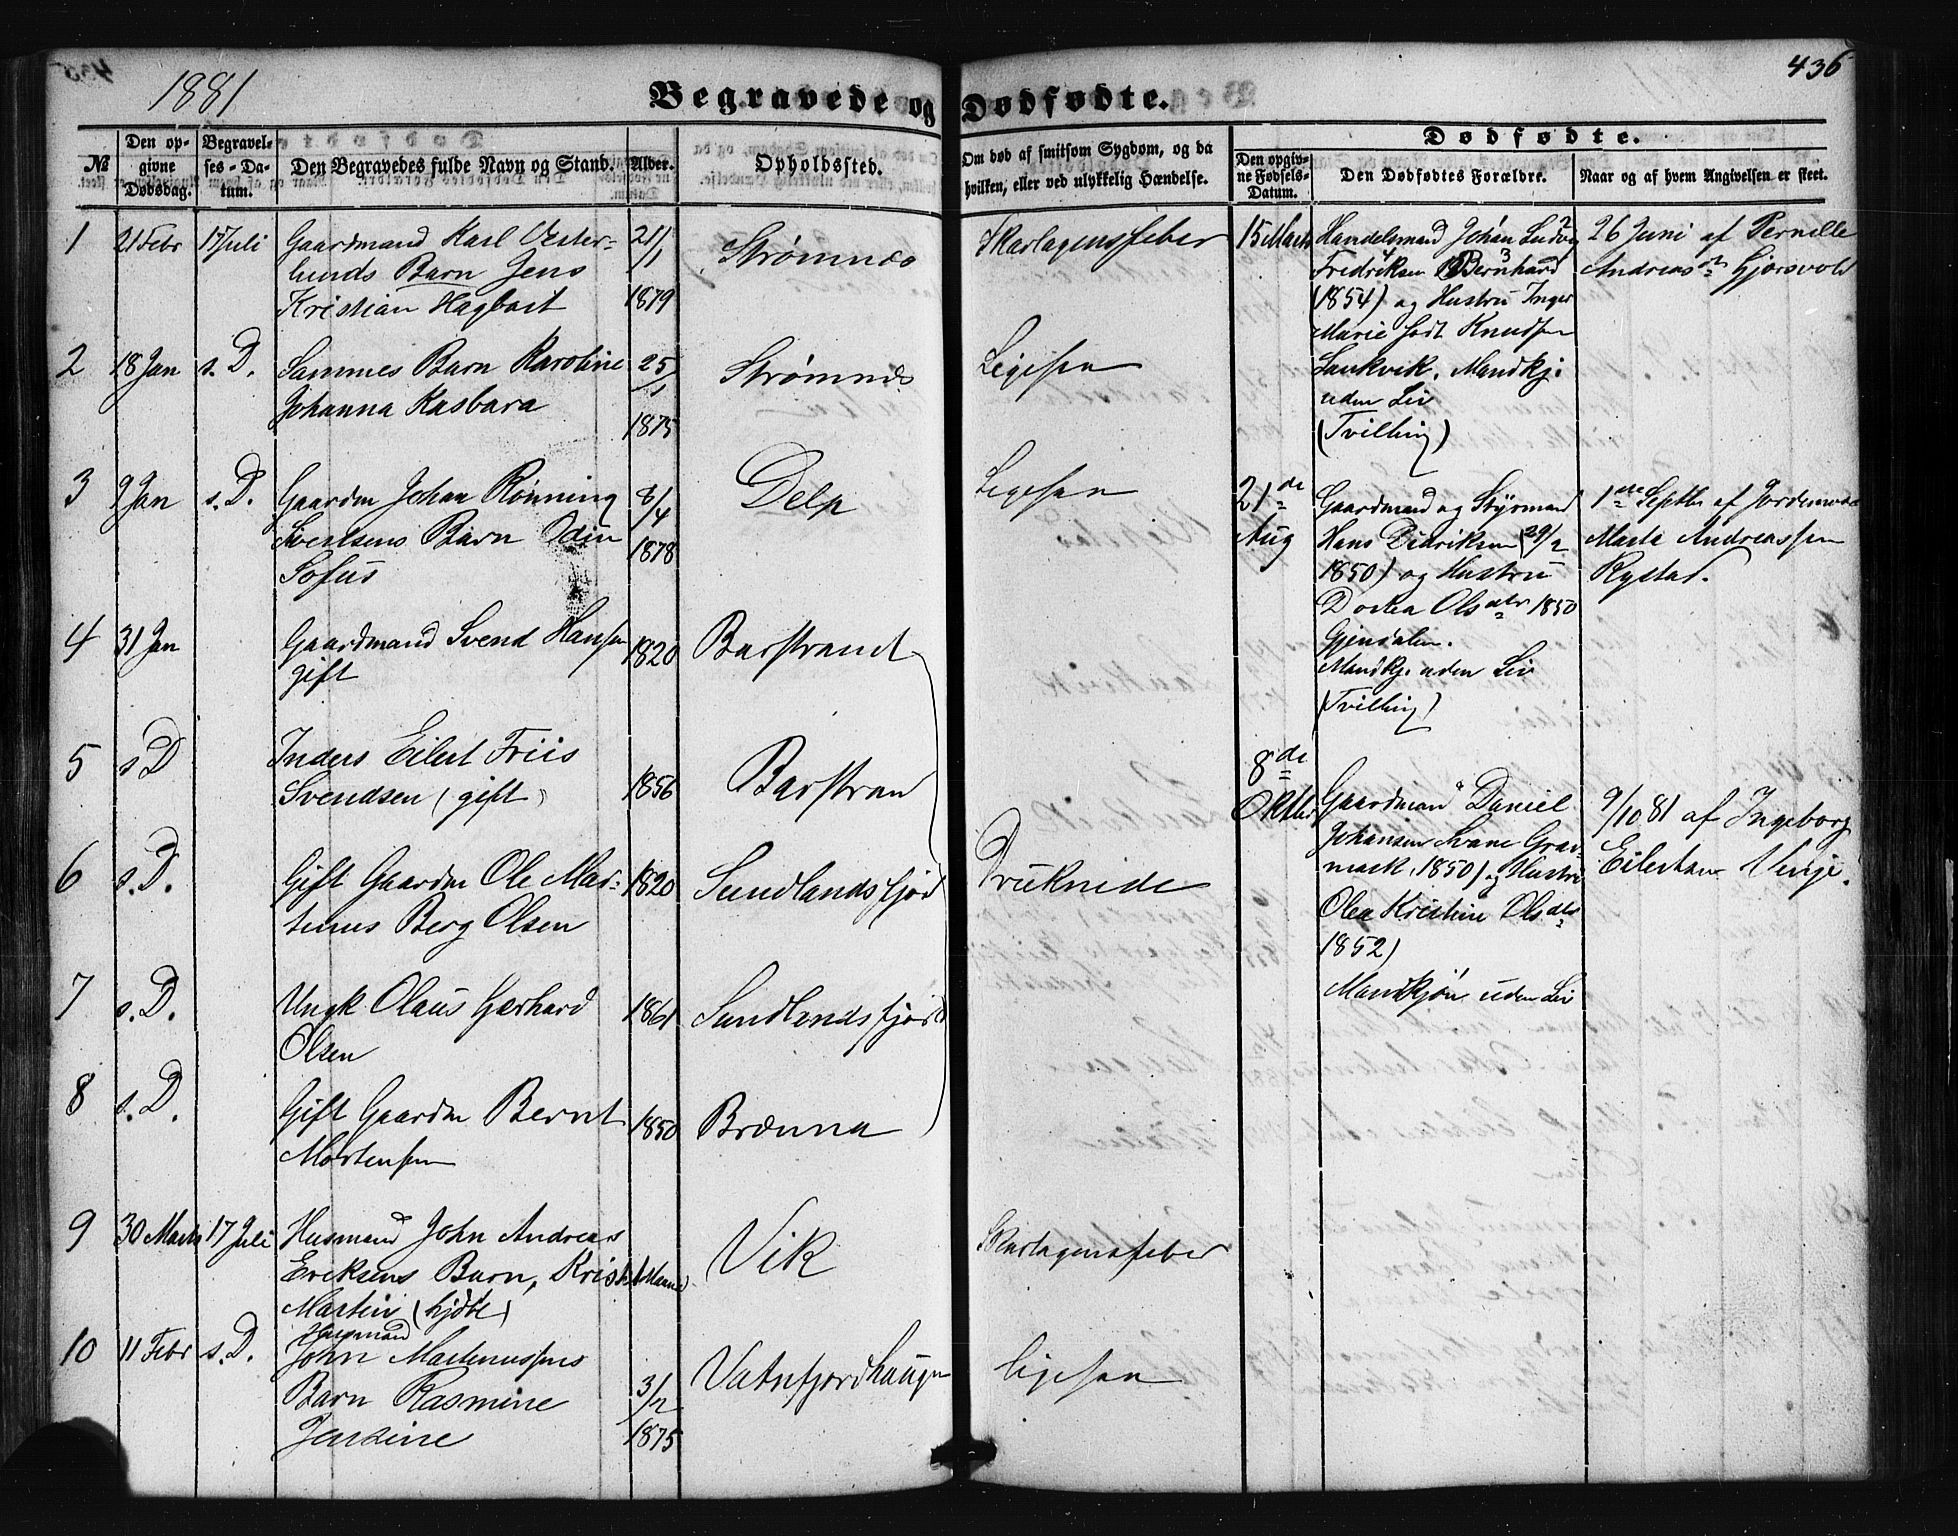 1881
436
Begravede og Dødfødte.
№
Den op-
givne
Dødsdag.
Begravel-
ses-Da-
tum.
Den Begravedes fulde Navn og Stand.
Alder.
Opholdssted.
Om død af smitsom Sygdom, og da
hvilken, eller ved ulykkelig Hændelse.
Dødfødte.
Den opgiv-
ne Fødsels-
Datum.
Den Dødfødtes Forældre.
Naar og af hvem Angivelsen er skeet.
1 21 Febr 17 Juli Gaardmand Karl Vester- 21/1 Strømnæs Skarlagensfeber
lunds Barn Jens
Kristian Hagbart 1879
2 18 Jan s. D. Sammes Barn Karoline 25/1 Strømnæs Ligesaa
Johanna Kasbara 1875
3 9 Jan s. D. Gaardm Johan Rønning 8/4 Delp Ligesaa
Sivertsens Barn Odin 1878
Sofus
4 31 Jan Gaardmand Svend Hansen 1820 Barstrand
gift
5 s D Inders Eilert Friis
Svendsen (gift) 1856 Barstran
6 s. D. Gift Gaardm Ole Mar- 1820 Sundlandsfjord Druknede
tinus Berg Olsen
7 s. D. Ungk Olaus Gerhard 1861 Sundlandsfjord
Olsen
8 s. D. Gift Gaardm Bernt 1850 Brænna
Mortensen
9 30 Marts 17 Juli Husmand John Andreas Vik Skarlagensfeber
Eriksens Barn, Krist
Martin (hjdbt)
Husmand
10 11 Febr s. D. John Martenussens Vatnfjordhaugen ligesaa
Barn Rasmine 3/2
Jensine 1875
15 Marts Handelsmand Johan Ludvig 26 Juni af Pernille
Fredriksen Bernhard Andreasdtr Gjersvold
(1854) og Hustru Inger
Marie født Knudsen
Laukvik. Mandkj.
uden Liv
(Tvilling)
21de Gaardmand og Styrmand 1ste Septbr af Jordemoder
Aug Hans Didriksen (29/2 Marta Andreassen
1850) og Hustru Rystad.
Dortea Olsdtr 1850
Gjendalen.
Mandkj. uden Liv
(Tvilling)
8de
Oktbr Gaardmand Daniel 9/10 81 af Ingeborg
Johansen Svane Grav-
mark (1850) og Hustru
Olea Kristine Olsdtr
1852)
Mandkjøn uden Liv